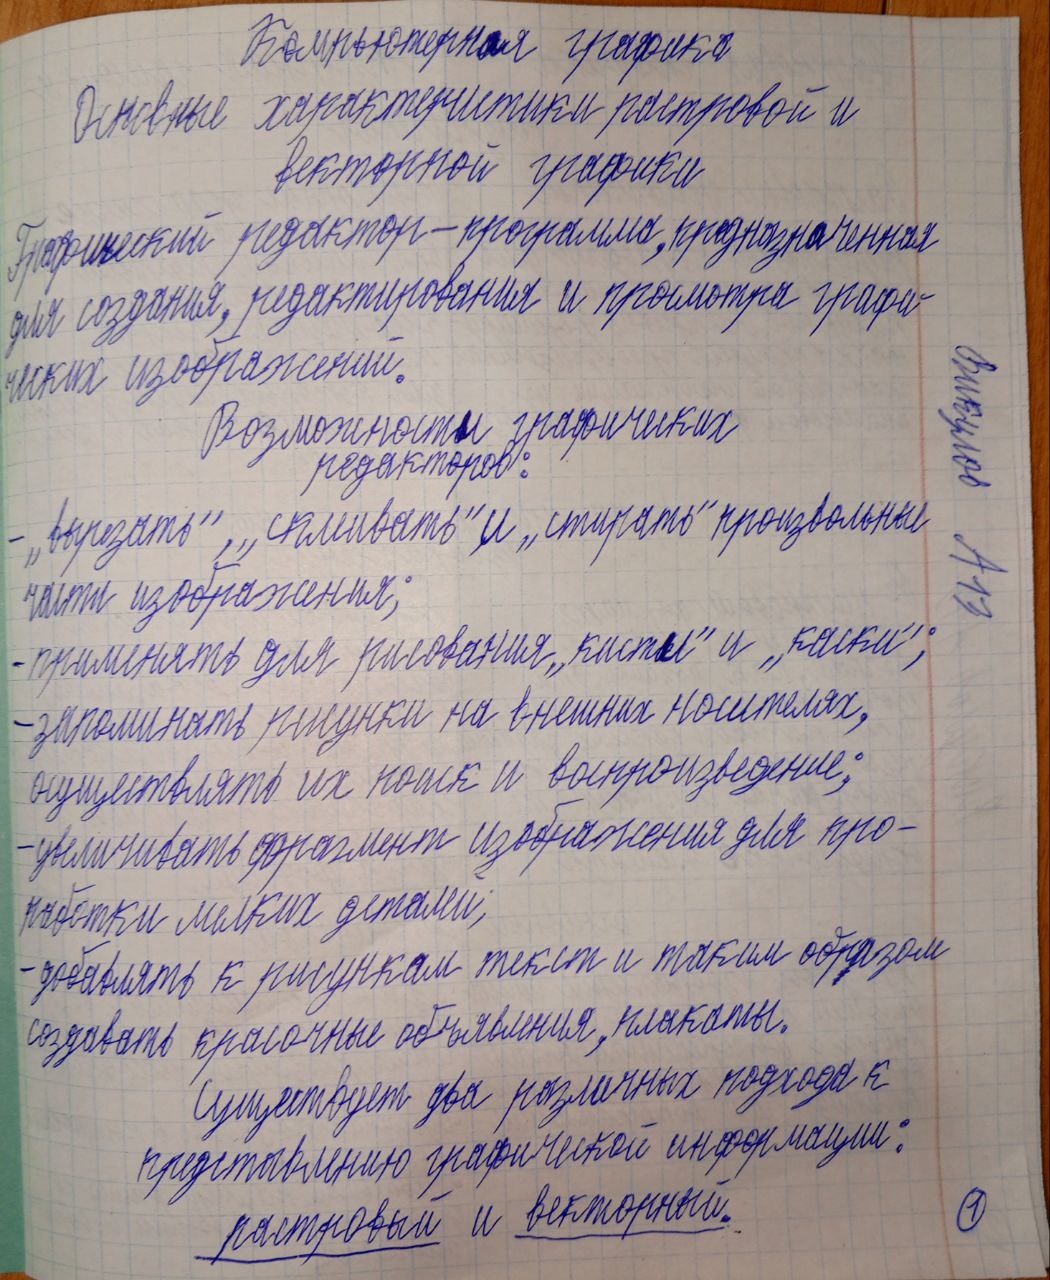 Компьютерная графика
Основные характеристики растровой и
векторной графики
Графический редактор – программа, предназначенная
для создания, редактирования и просмотра графи-
ческих изображений.
Возможности графических
редакторов:
- „вырезать", „склеивать" и „стирать" произвольные
части изображения;
- применять для рисования „кисти" и „каски";
- запоминать рисунки на внешних носителях,
осуществлять их поиск и воспроизведение;
- увеличивать фрагмент изображения для про-
работки мелких деталей;
- добавлять к рисункам текст и таким образом
создавать красочные объявления, плакаты.
Существует два различных подхода к
представлению графической информации:
растровый и векторный.
Викулов А13
1